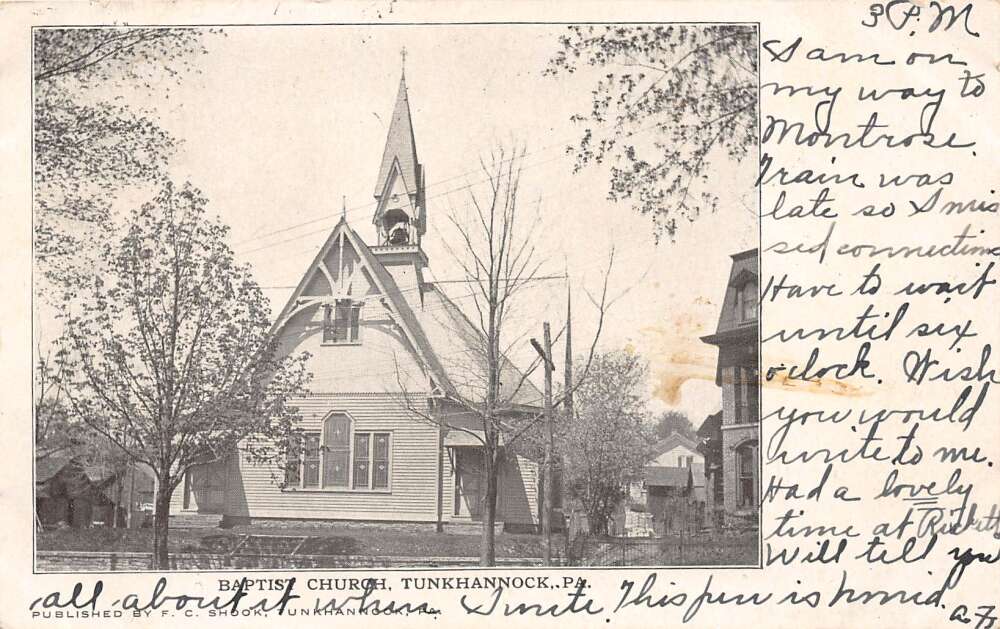 3 P.M
I am on
my way to
Montrose.
Train was
late so I mis
sed connections
Have to wait
until six
o'clock. Wish
you would
write to me.
Had a lovely
time at Ricketts
Will tell you
BAPTIST CHURCH, TUNKHANNOCK, PA.
all about it when I write. This pen is horrid.
PUBLISHED BY F. C. SHOOK, TUNKHANNOCK, PA.